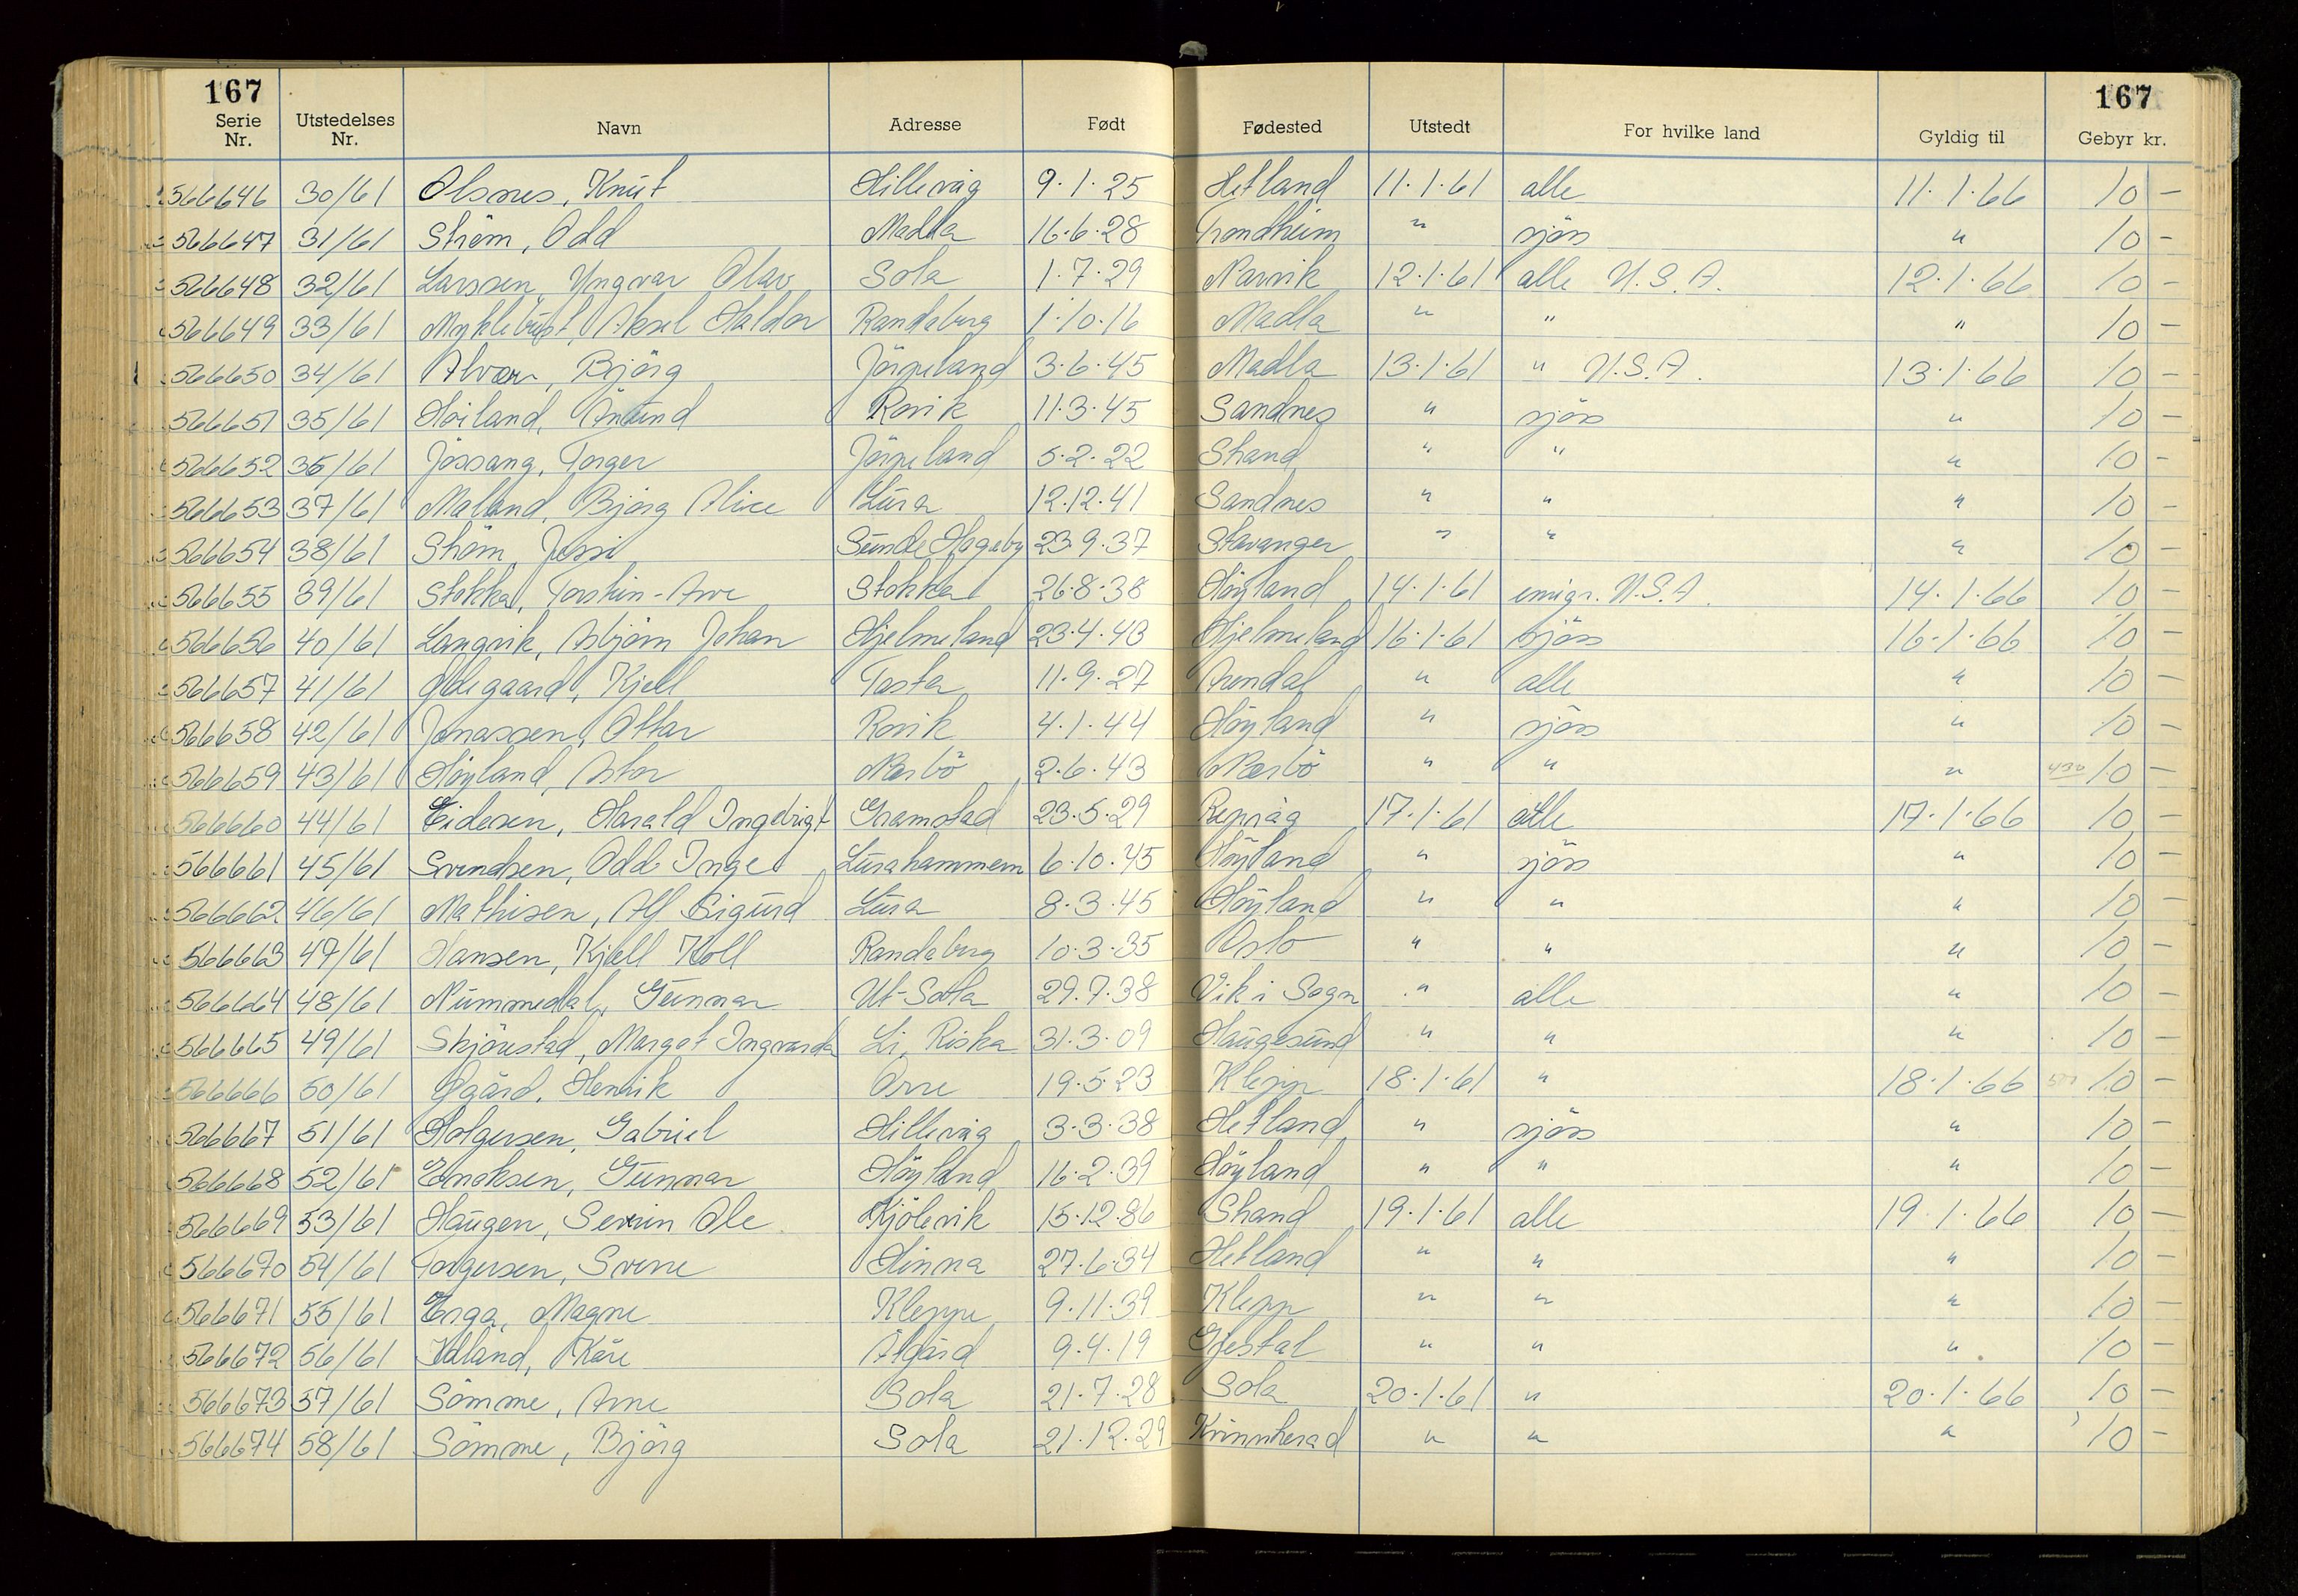 167 167
Serie Nr. Utstedelses Nr. Navn Adresse Født Fødested Utstedt For hvilke land Gyldig til Gebyr kr.
566646 30/61 Olsnes, Knut Hillevåg 9.1.25 Hetland 11.1.61 alle 11.1.66 10 –
566647 31/61 Ström, Odd Madla 16.6.28 Trondheim " sjös " 10 –
566648 32/61 Larssen Yngvar Olav Sola 1.7.29 Narvik 12.1.61 alle U.S.A. 12.1.66 10 –
566649 33/61 Myklebust, Aksel Haldor Randaberg 1.10.16 Madla " " " 10 –
566650 34/61 Alvær, Björg Jörpeland 3.6.45 Madla 13.1.61 " U.S.A. 13.1.66 10 –
566651 35/61 Höiland, Ånund Rovik 11.3.45 Sandnes " sjös " 10 –
566652 36/61 Jössang, Torger Jörpeland 5.2.22 Strand " " " 10 –
566653 37/61 Maland, Bjørg Alice Lura 12.12.41 Sandnes " " " 10 –
566654 38/61 Ström, Jessi Sunde Hageby 23.9.37 Stavanger " " " 10 –
566655 39/61 Stokka, Torstein-Arve Stokka 26.8.38 Höyland 14.1.61 emigr. U.S.A. 14.1.66 10 –
566656 40/61 Langvik, Asbjörn Johan Hjelmeland 23.4.43 Hjelmeland 16.1.61 sjös 16.1.66 10 –
566657 41/61 Ødegaard, Kjell Tasta 11.9.27 Arendal " alle " 10 –
566658 42/61 Jonassen, Ottar Rovik 4.1.44 Höyland " sjös " 10 –
566659 43/61 Höyland, Astor Nærbö 2.6.43 Nærbö " " " 10 –
566660 44/61 Eidesen, Harald Ingebrigt Gramstad 23.5.29 Repvåg 17.1.61 alle 17.1.66 10 –
566661 45/61 Svendsen, Odd Inge Lurahammeren 6.10.45 Höyland " sjös " 10 –
566662 46/61 Mathisen, Alf Sigurd Lura 8.3.45 Höyland " " " 10 –
566663 47/61 Hansen, Kjell Koll Randaberg 10.3.35 Oslo " " " 10 –
566664 48/61 Nummedal, Gunnar Ut-Sola 29.7.38 Vik i Sogn " alle " 10 –
566665 49/61 Skjörestad, Margot Ingvarda Li, Riska 31.3.09 Haugesund " " " 10 –
566666 50/61 Øgård, Henrik Orre 19.5.23 Klepp 18.1.61 " 18.1.66 10 –
566667 51/61 Holgersen, Gabriel Hillevåg 3.3.38 Hetland " sjös " 10 –
566668 52/61 Enoksen, Gunnar Höyland 16.2.39 Höyland " " " 10 –
566669 53/61 Haugen, Severin Ole Kjölevik 15.12.86 Strand 19.1.61 alle 19.1.66 10 –
566670 54/61 Torgersen, Sverre Hinna 27.6.34 Hetland " " " 10 –
566671 55/61 Erga, Magne Kleppe 9.11.39 Klepp " " " 10 –
566672 56/61 Idland, Kåre Ålgård 9.4.19 Gjestal " " " 10 –
566673 57/61 Sömme, Arne Sola 21.7.28 Sola 20.1.61 " 20.1.66 10 –
566674 58/61 Sömme, Björg Sola 21.12.29 Kvinnherad " " " 10 –